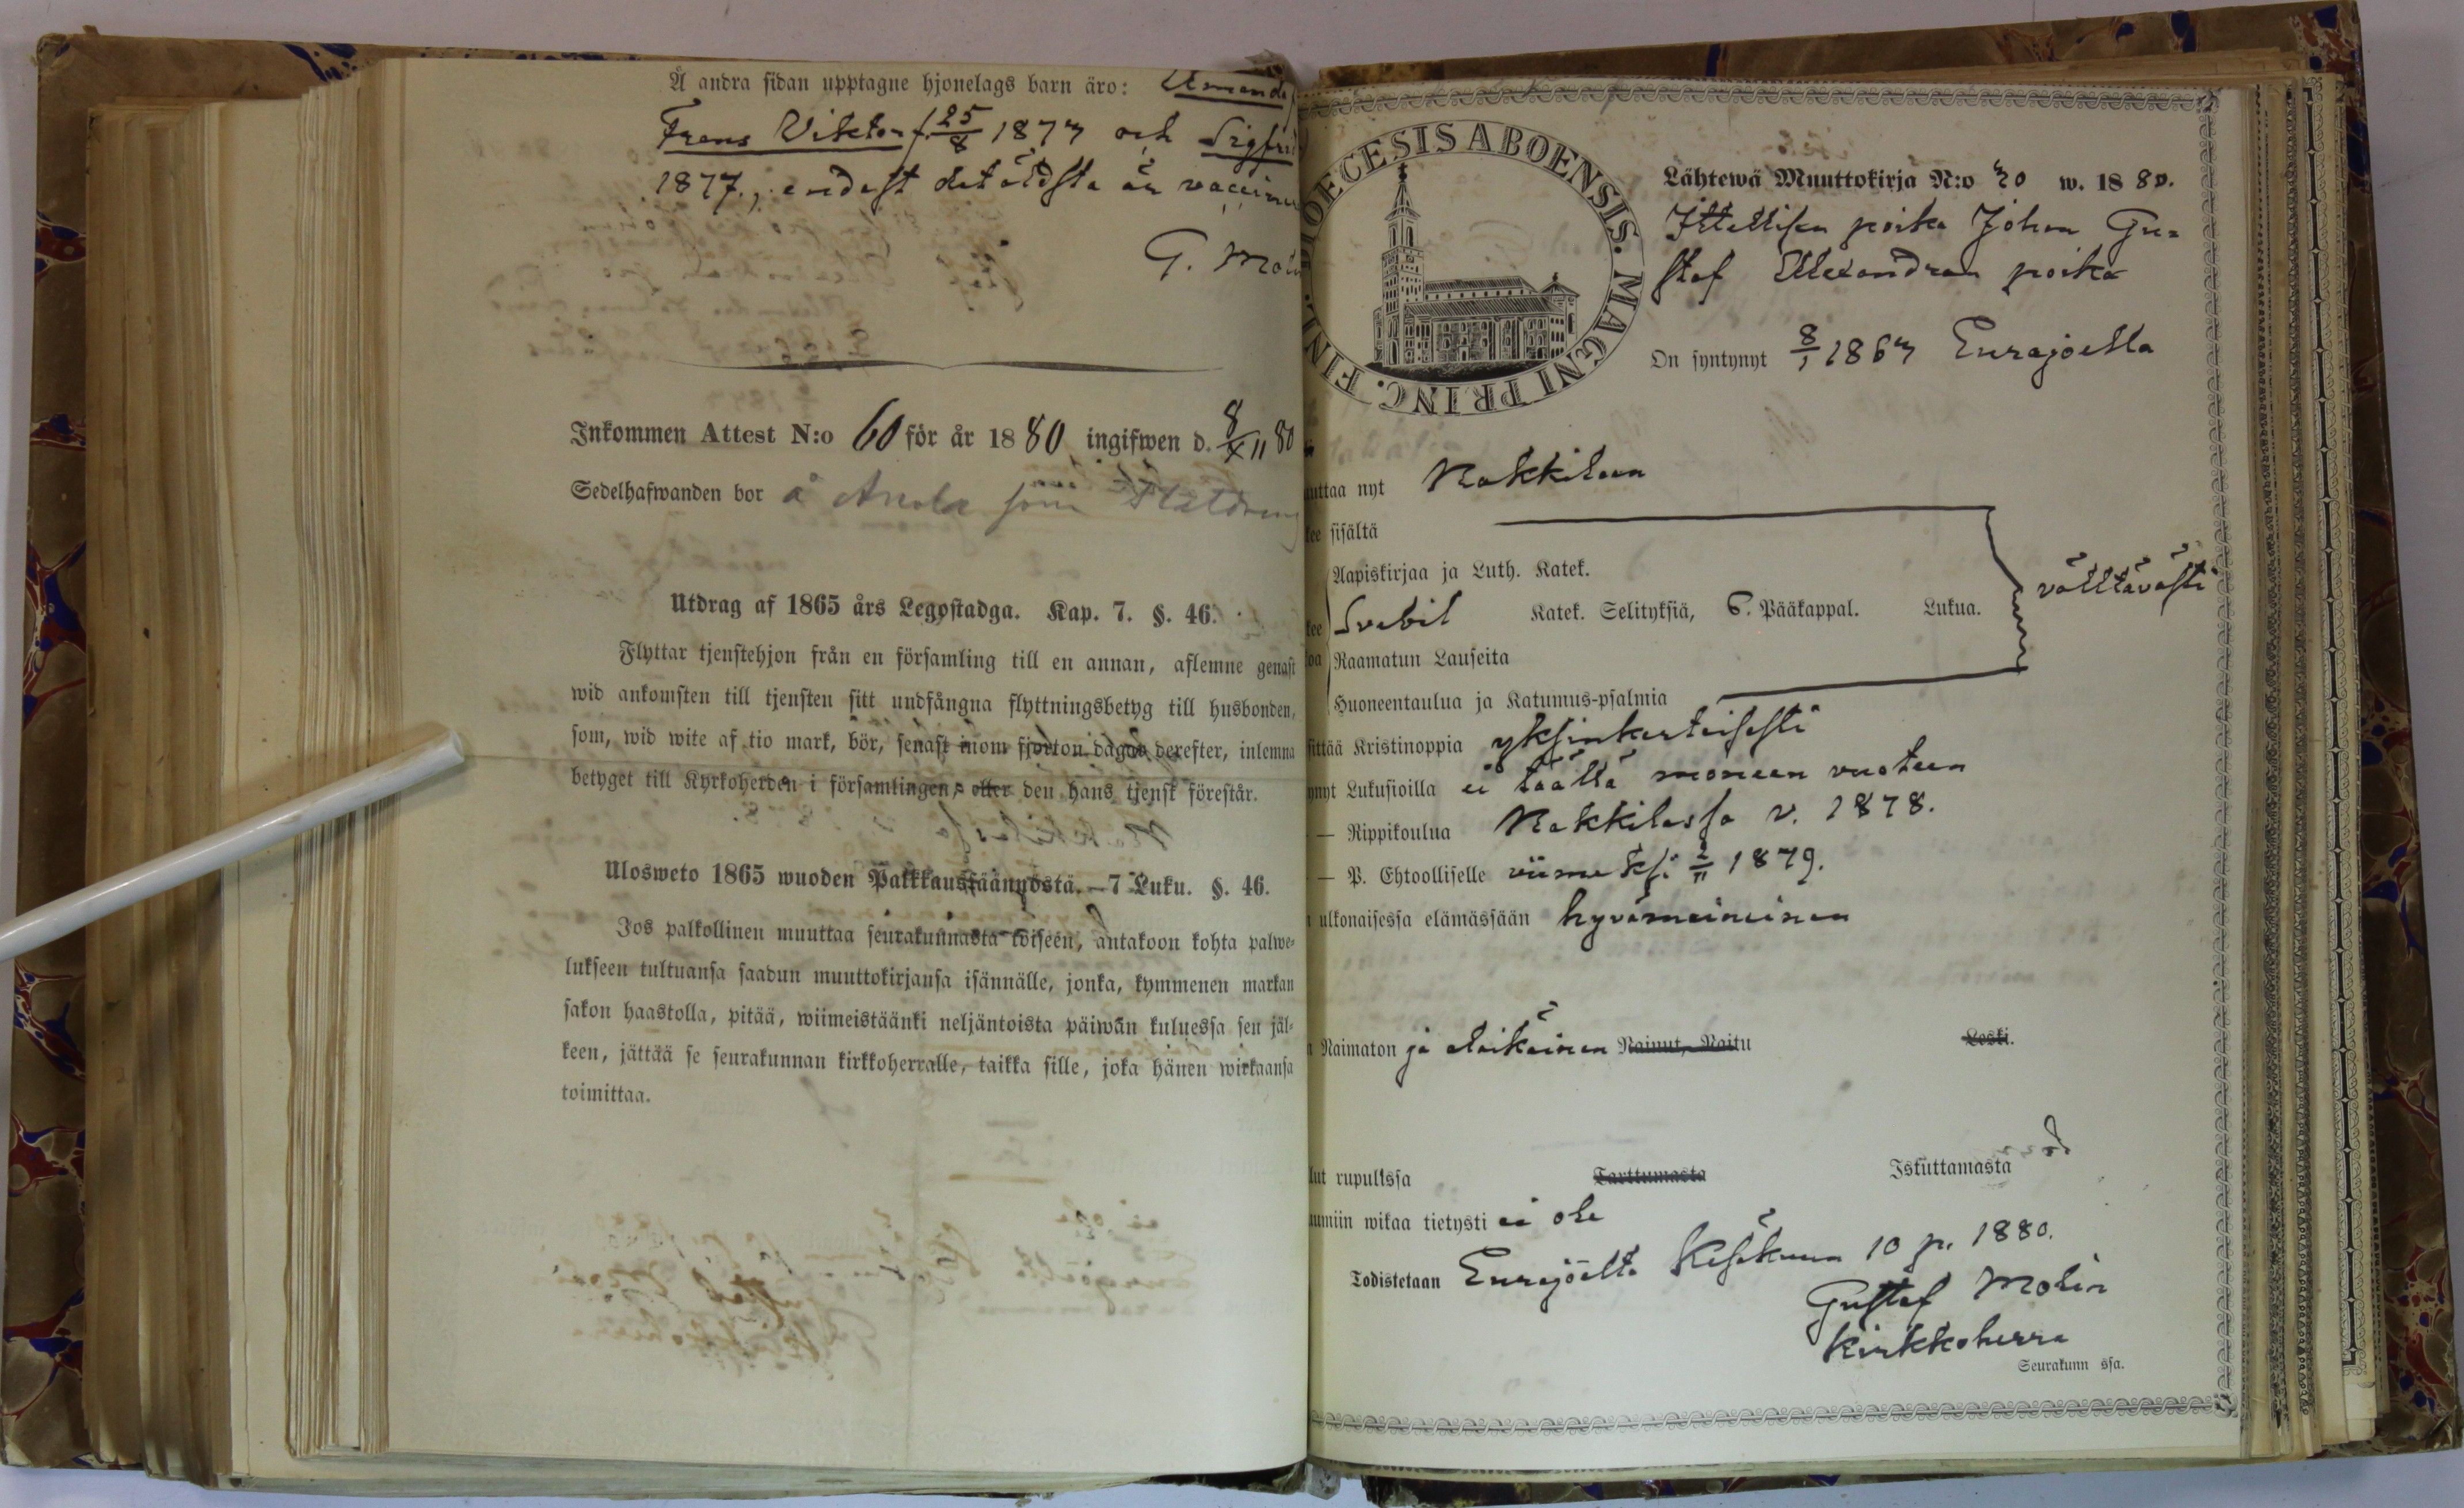 Å andra sidan upptagne hjonelags barn äro: Amanda
Frans Viktor f. 25/8 1873 och Sigfrid
1877., endast det äldsta är vaccine
G. Molin
Inkommen Attest N:o 60 för år 1880 ingifwen d. 8/XII 80
Sedelhafwanden bor å Anola som
Utdrag af 1865 års Legostadga. Kap. 7. §. 46.
Flyttar tjenstehjon från en församling till en annan, aflemne genast
wid ankomsten till tjensten sitt undfångna flyttningsbetyg till husbonden,
som, wid wite af tio mark, bör, senast inom fjorton dagar derefter, inlemna
betyget till Kyrkoherden i församlingen, eller den hans tjenst förestår.
Ulosweto 1865 wuoden Palkkaussäännöstä. – 7 Luku. §. 46.
Jos palkollinen muuttaa seurakunnasta toiseen, antakoon kohta palwe-
lukseen tultuansa saadun muuttokirjansa isännälle, jonka, kymmenen markan
sakon haastolla, pitää, wiimeistäänki neljäntoista päiwän kuluessa sen jäl-
keen, jättää se seurakunnan kirkkoherralle, taikka sille, joka hänen wirkaansa
toimittaa.
DIOECESIS ABOENSIS. MAGNI PRINC. FINL.
Lähtewä Muuttokirja N:o 30 w. 1880.
Itsellisen poika Johan Gu-
staf Alexandran poika
On syntynyt 8/1 1863 Eurajoella
uttaa nyt Nakkilaan
kee sisältä
Aapiskirjaa ja Luth. Katek.
Svebil Katek. Selityksiä, 6. Pääkappal. Lukua.
välttävästi
Raamatun Lauseita
Huoneentaulua ja Katumus-psalmia
sittää Kristinoppia yksinkertaisesti
ynyt Lukusioilla ei täällä moneen vuoteen
— Rippikoulua Nakkilassa v. 1878.
— P. Ehtoolliselle viimeksi 2/11 1879.
ulkonaisessa elämässään hyvämaineinen
Naimaton ja alaikäinen Nainut, Naitu Leski.
lut rupulissa Tarttumasta Istuttamasta
umiin wikaa tietysti ei ole
Todistetaan Eurajoelta Kesäkuun 10 p. 1880.
Gustaf Molin
Kirkkoherra
Seurakunn ssa.